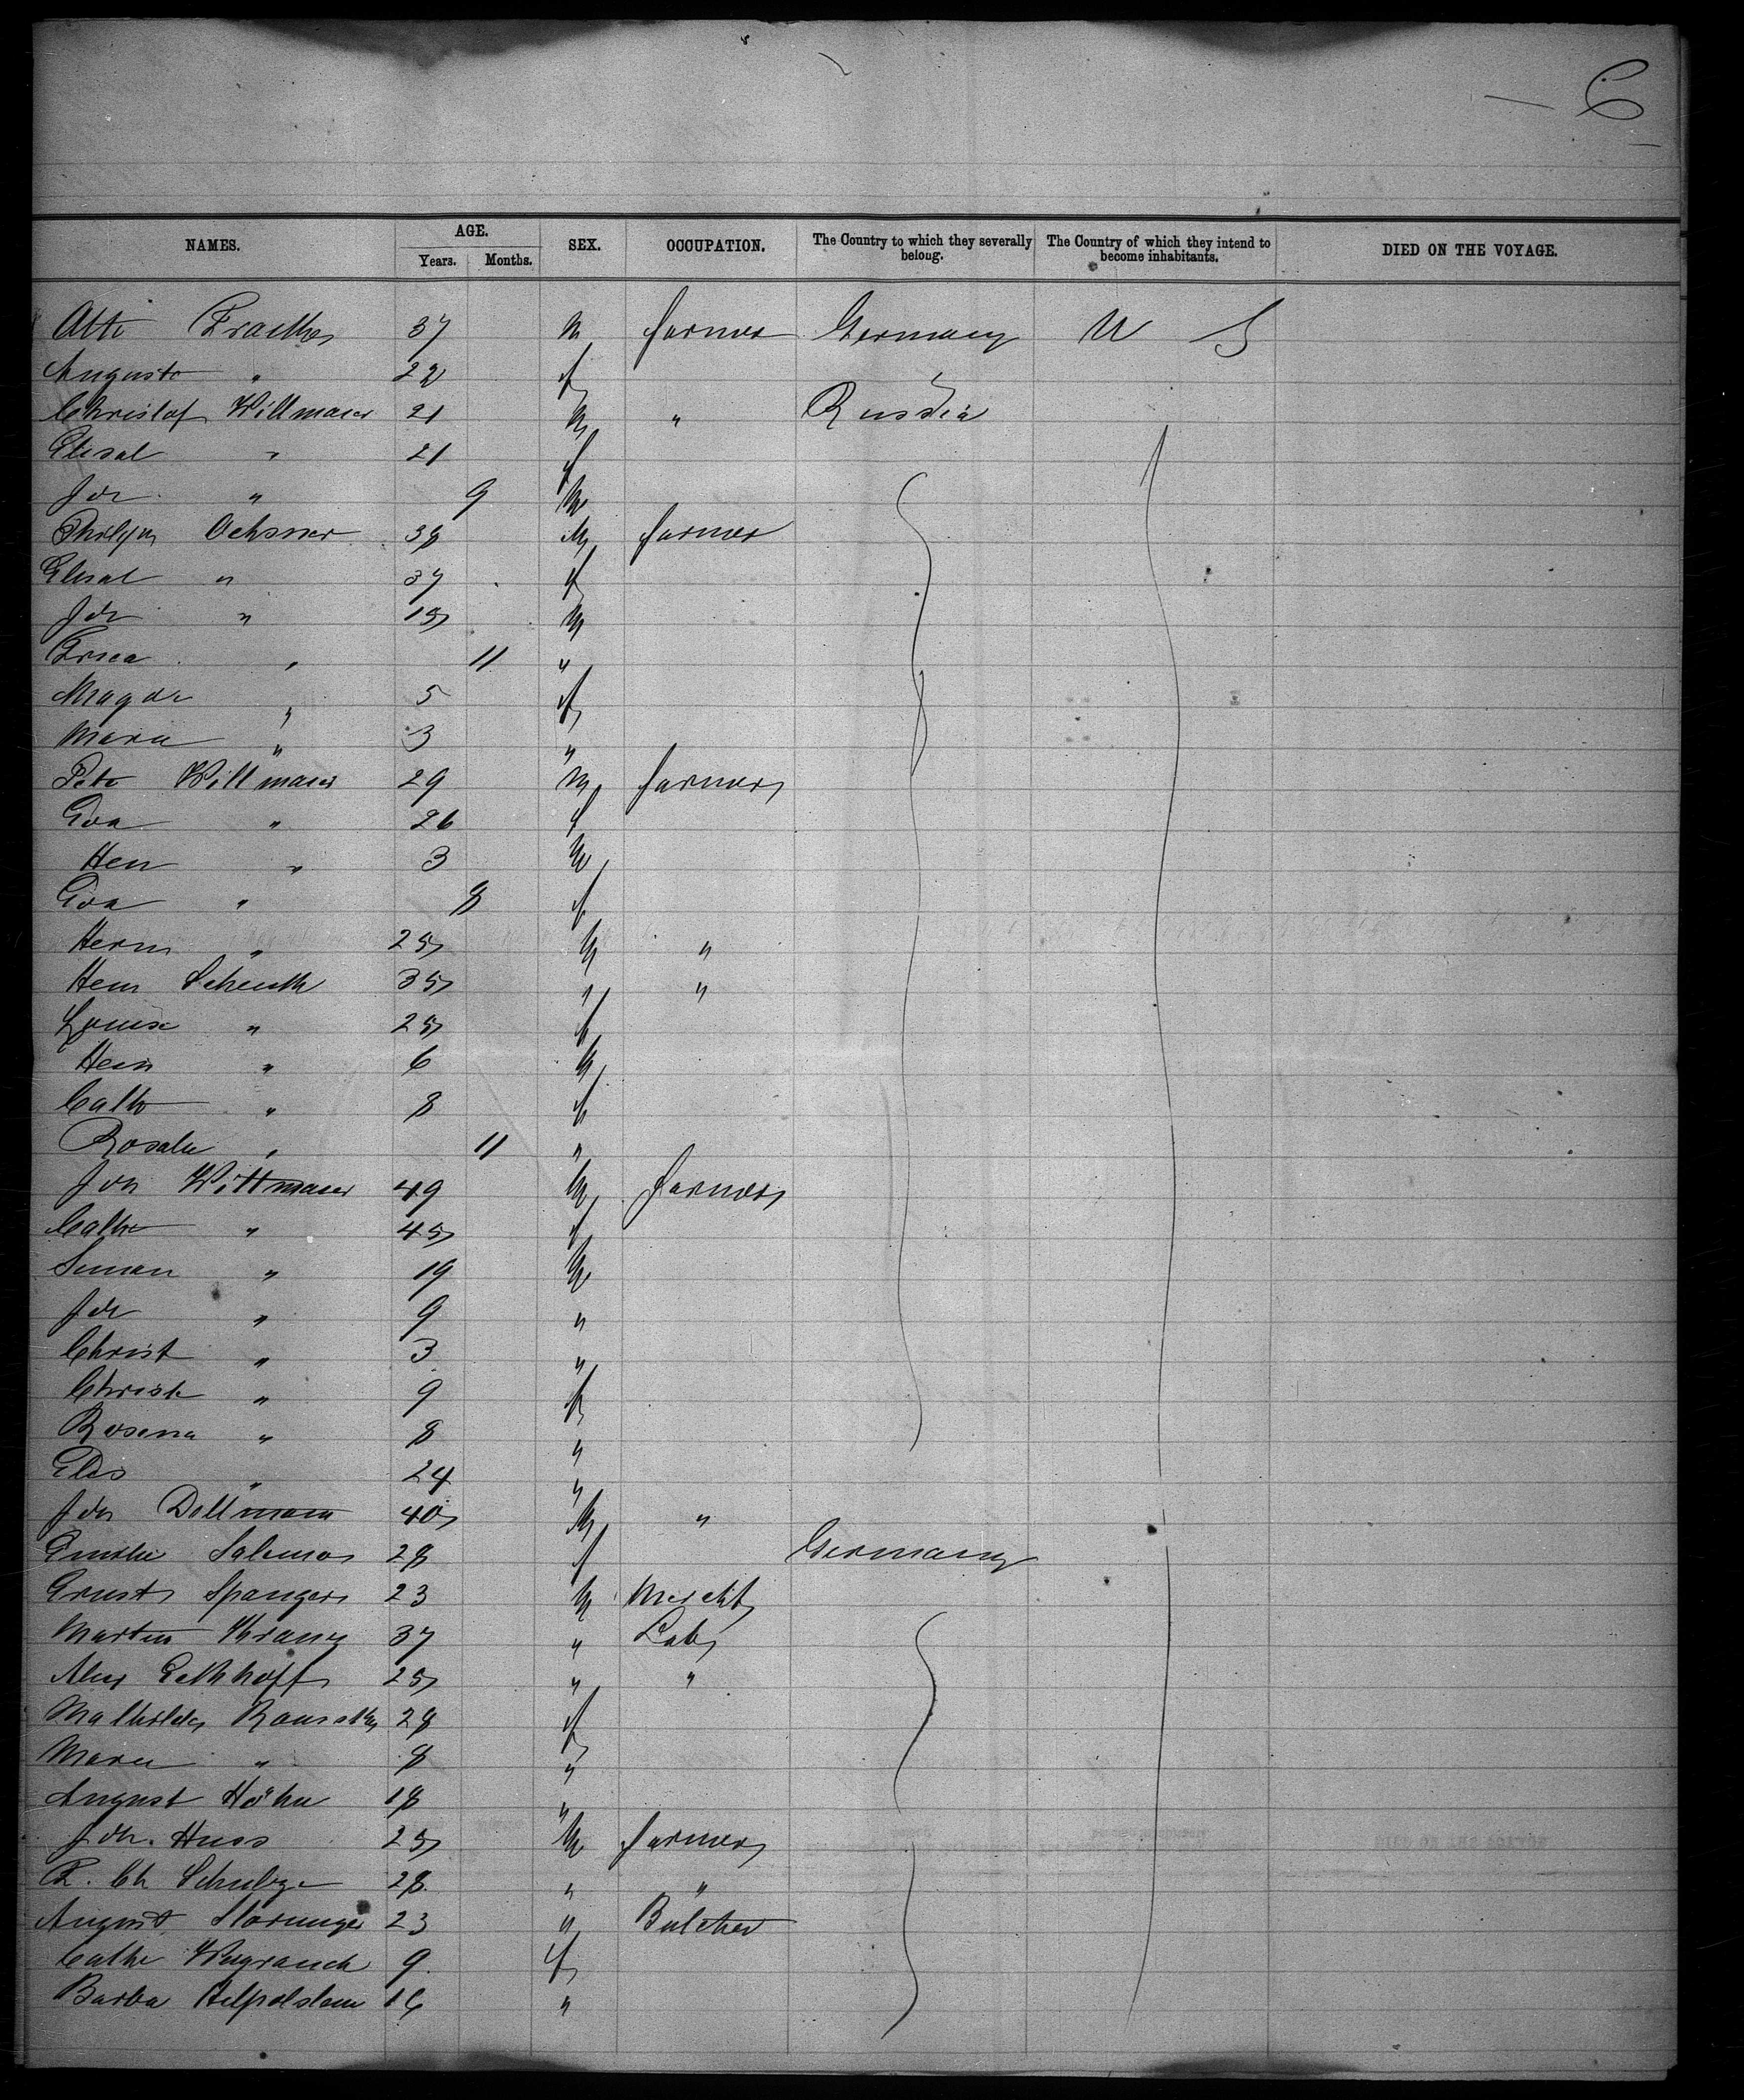 6
NAMES. AGE. SEX. OCCUPATION. The Country to which they severally belong. The Country of which they intend to become inhabitants. DIED ON THE VOYAGE.
Years. Months.
37 m farmer Germany U S
Auguste " 22 f
Christof Willmaier 21 m " Russia
Elisab " 21 f
Joh " 9 m
Philipp Ochsner 38 m farmer
Elisab " 37 f
Joh " 15 m
" 11 "
Magda " 5 f
Maria " 3 "
Peter Willmaier 29 m farmer
Eva " 26 f
Hen " 3 m
Eva " 8 f
Herm " 25 m "
Hein 35 " "
Louise " 25 f
Hein " 6 m
Cath " 8 f
Rosalie " 11 "
Joh Willmaier 49 m farmer
Cathe " 45 f
Simon " 19 m
Joh " 9 "
Christ " 3 "
Christe " 9 f
Rosena " 8 "
Elis " 24 "
Joh Dollmann 40 m "
Emilie 28 f Germany
Ernst Spanger 23 m Mercht
Martin 37 " Lab
25 " "
Mathilde 28 f
Marie " 8 "
August Höhn 18 "
Joh. Huss 25 m farmer
F. Ch Schulze 28 " "
August 23 " Butcher
Cathe Weyrauch 9 f
Barba 16 "